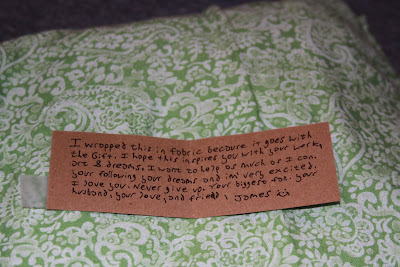 I wrapped this in fabric because it goes with
the Gift. I hope this inspires you with your work,
art & dreams. I want to help as much as I can.
your following your dreams and im very excited.
I love you. Never give up. Your biggest fan. your
husband, your love, and friend, James